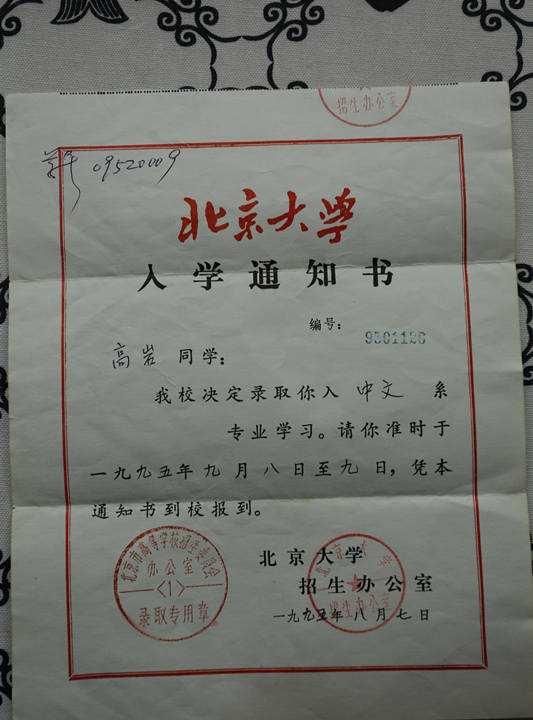 招生办公室
09520009
北京大学
入学通知书
编号: 9501120
高岩 同学:
我校决定录取你入 中文 系
专业学习。请你准时于
一九九五年九月八日至九日,凭本
通知书到校报到。
北京大学
招生办公室
一九九五年八月七日
北京市高等学校招生委员会
办公室
<1>
录取专用章
招生办公室